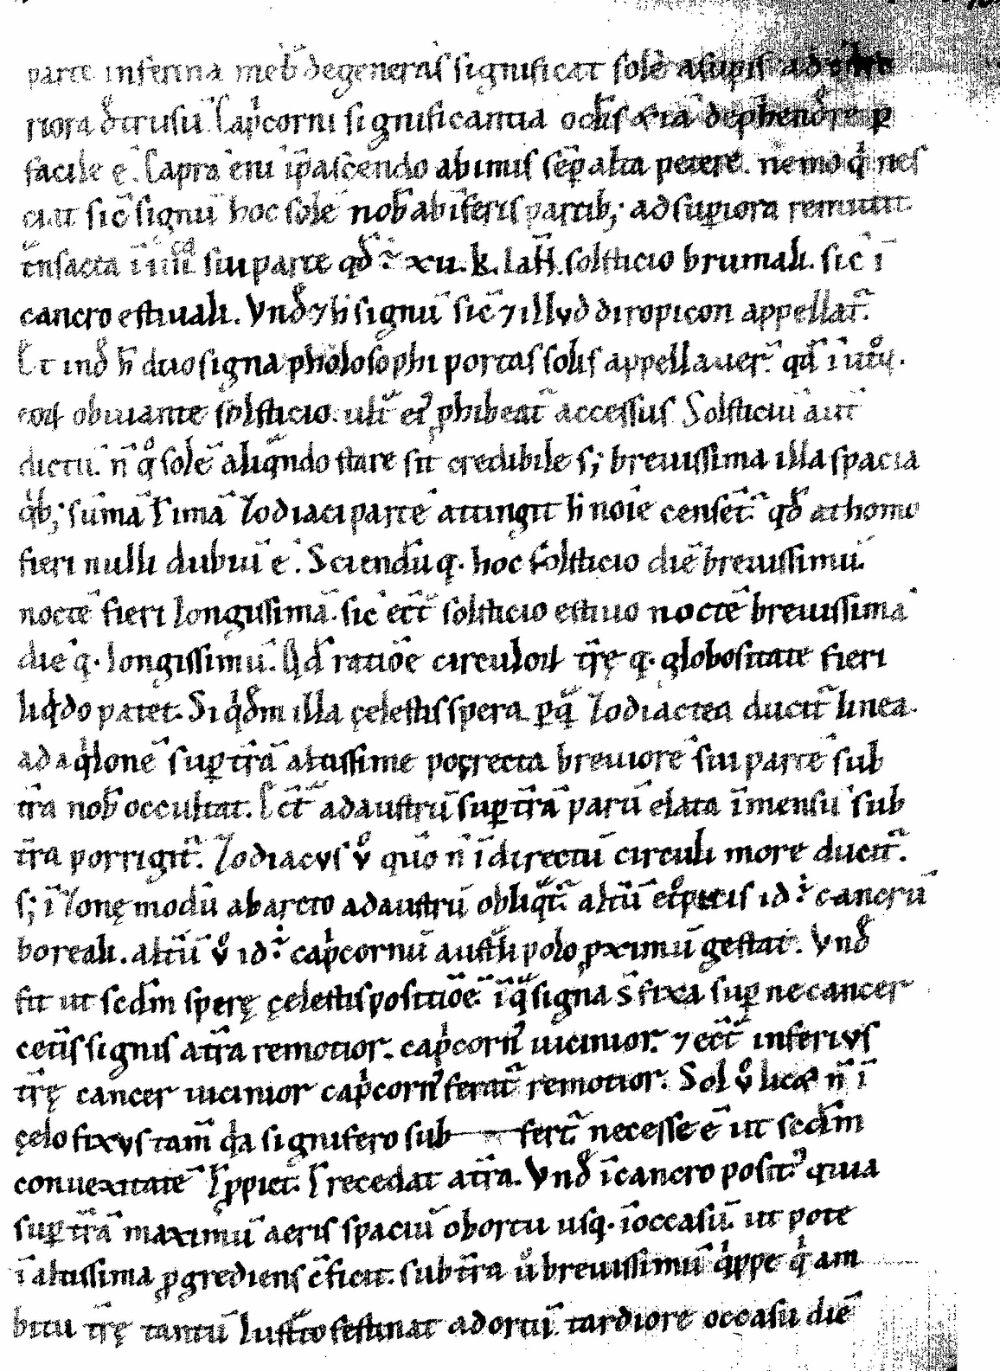 parte inferina mēb degenerās significat solē a supis ad
riora dͭrusū. Capͥcorni significantia oclis etiā dephendͦre p
facile ē. Capra eni īp ascendo ab imis sēp alta petere. nemo qͥ nes
ciat sic signū hoc solē nob ab īferis partib; ad supiora remittit
t̄nsacta ī iiii sui parte qd ÷ xii. k. Iaн̄. solsticio brumali. sic ī
cancro estiuali. Vnd̄ ⁊ h̄ signū sic ⁊ illud diropicon appellat̄.
Et ind̄ h̄ duo signa pholosophi portas solis appellauer̄. qd̄ ī
obuiante solsticio. ult̄ ei phibeat̄ accessus Solsticiū aut̄
dictū. n̄ qͦ solē aliqͣndo stare sit credibile s; breuissima illa spacia
qͥb; sūmā l̄ imā Zodiaci partē attingit h̄ noīe censet̄. qd̄ athomo
fieri nulli dubiū ē. Sciendū q. hoc solsticio diē breuissimū.
noctē fieri longissimā. sic ecͭ solsticio estiuo noctē breuissimā
diē q. longissimū. Qd̄ ratiōe circuloꝝ t̄rę q. globositate fieri
liqͥdo patet. Siqͥdm illa çelestis spera pqͣ Zodiactea ducit̄ linea.
ad aqͥlonē sup t̄rā altissime porrecta breuiorē sui partē sub
t̄ra nob occultat. Ecͭ ad austrū sup t̄rā parū elata īmensū sub
t̄ra porrigit̄. Zodiacus uͦ quo n̄ ī directū circuli more ducit̄.
s; ī Zonę modū ab arcto ad austrū obliqͣt̄. alt̄ū id ÷ cancrū
boreali. alt̄ū uͦ id ÷ capͥcornū polo pximū gestat. Vnd̄
fit ut scdm sperę çelestis positiōē. ī qͣ signa s̄ fixa sup ne cancer
cet̄is signis at̄ra remotior. capͥcornꝰ uicinior. ⁊ ecͭ inferius
t̄rę cancer uicinior capͥcornꝰ ferat̄ remotior. Sol uͦ licet n̄ ī
çelo fixus tam̄ qͥa signifero sub fert̄ necesse ē ut scdm
conuexitatē l̄ ppiet. l̄ recedat at̄ra. Vnd̄ ī cancro positꝰ quia
sup t̄rā maximū aeris spaciū obortu usq. ī occasū. ut pote
ī altissima pgrediens cͦficit. sub t̄ra uͦ breuissimū qͥppe qͥ am
bitu t̄rę tantū lustͣto festinat ad ortū. tardiore occasu diē